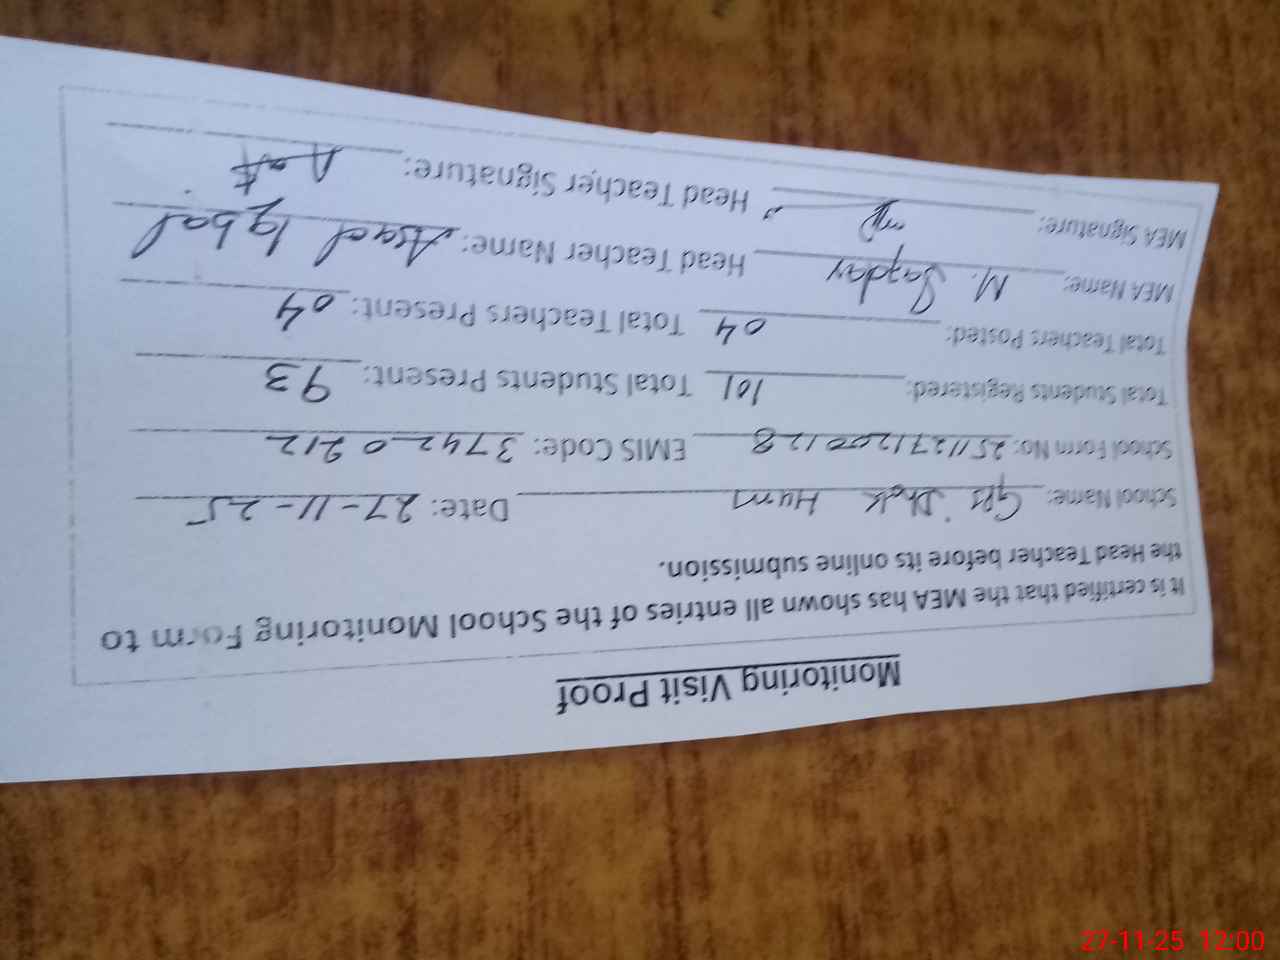 Monitoring Visit Proof
It is certified that the MEA has shown all entries of the School Monitoring Form to
the Head Teacher before its online submission.
School Name: GPS Dhok Hum Date: 27-11-25
School Form No: 2511271200128 EMIS Code: 37420212
Total Students Registered: 101 Total Students Present: 93
Total Teachers Posted: 04 Total Teachers Present: 04
MEA Name: M. Safdar Head Teacher Name: Asad Iqbal
MEA Signature: Head Teacher Signature:
27-11-25 12:00